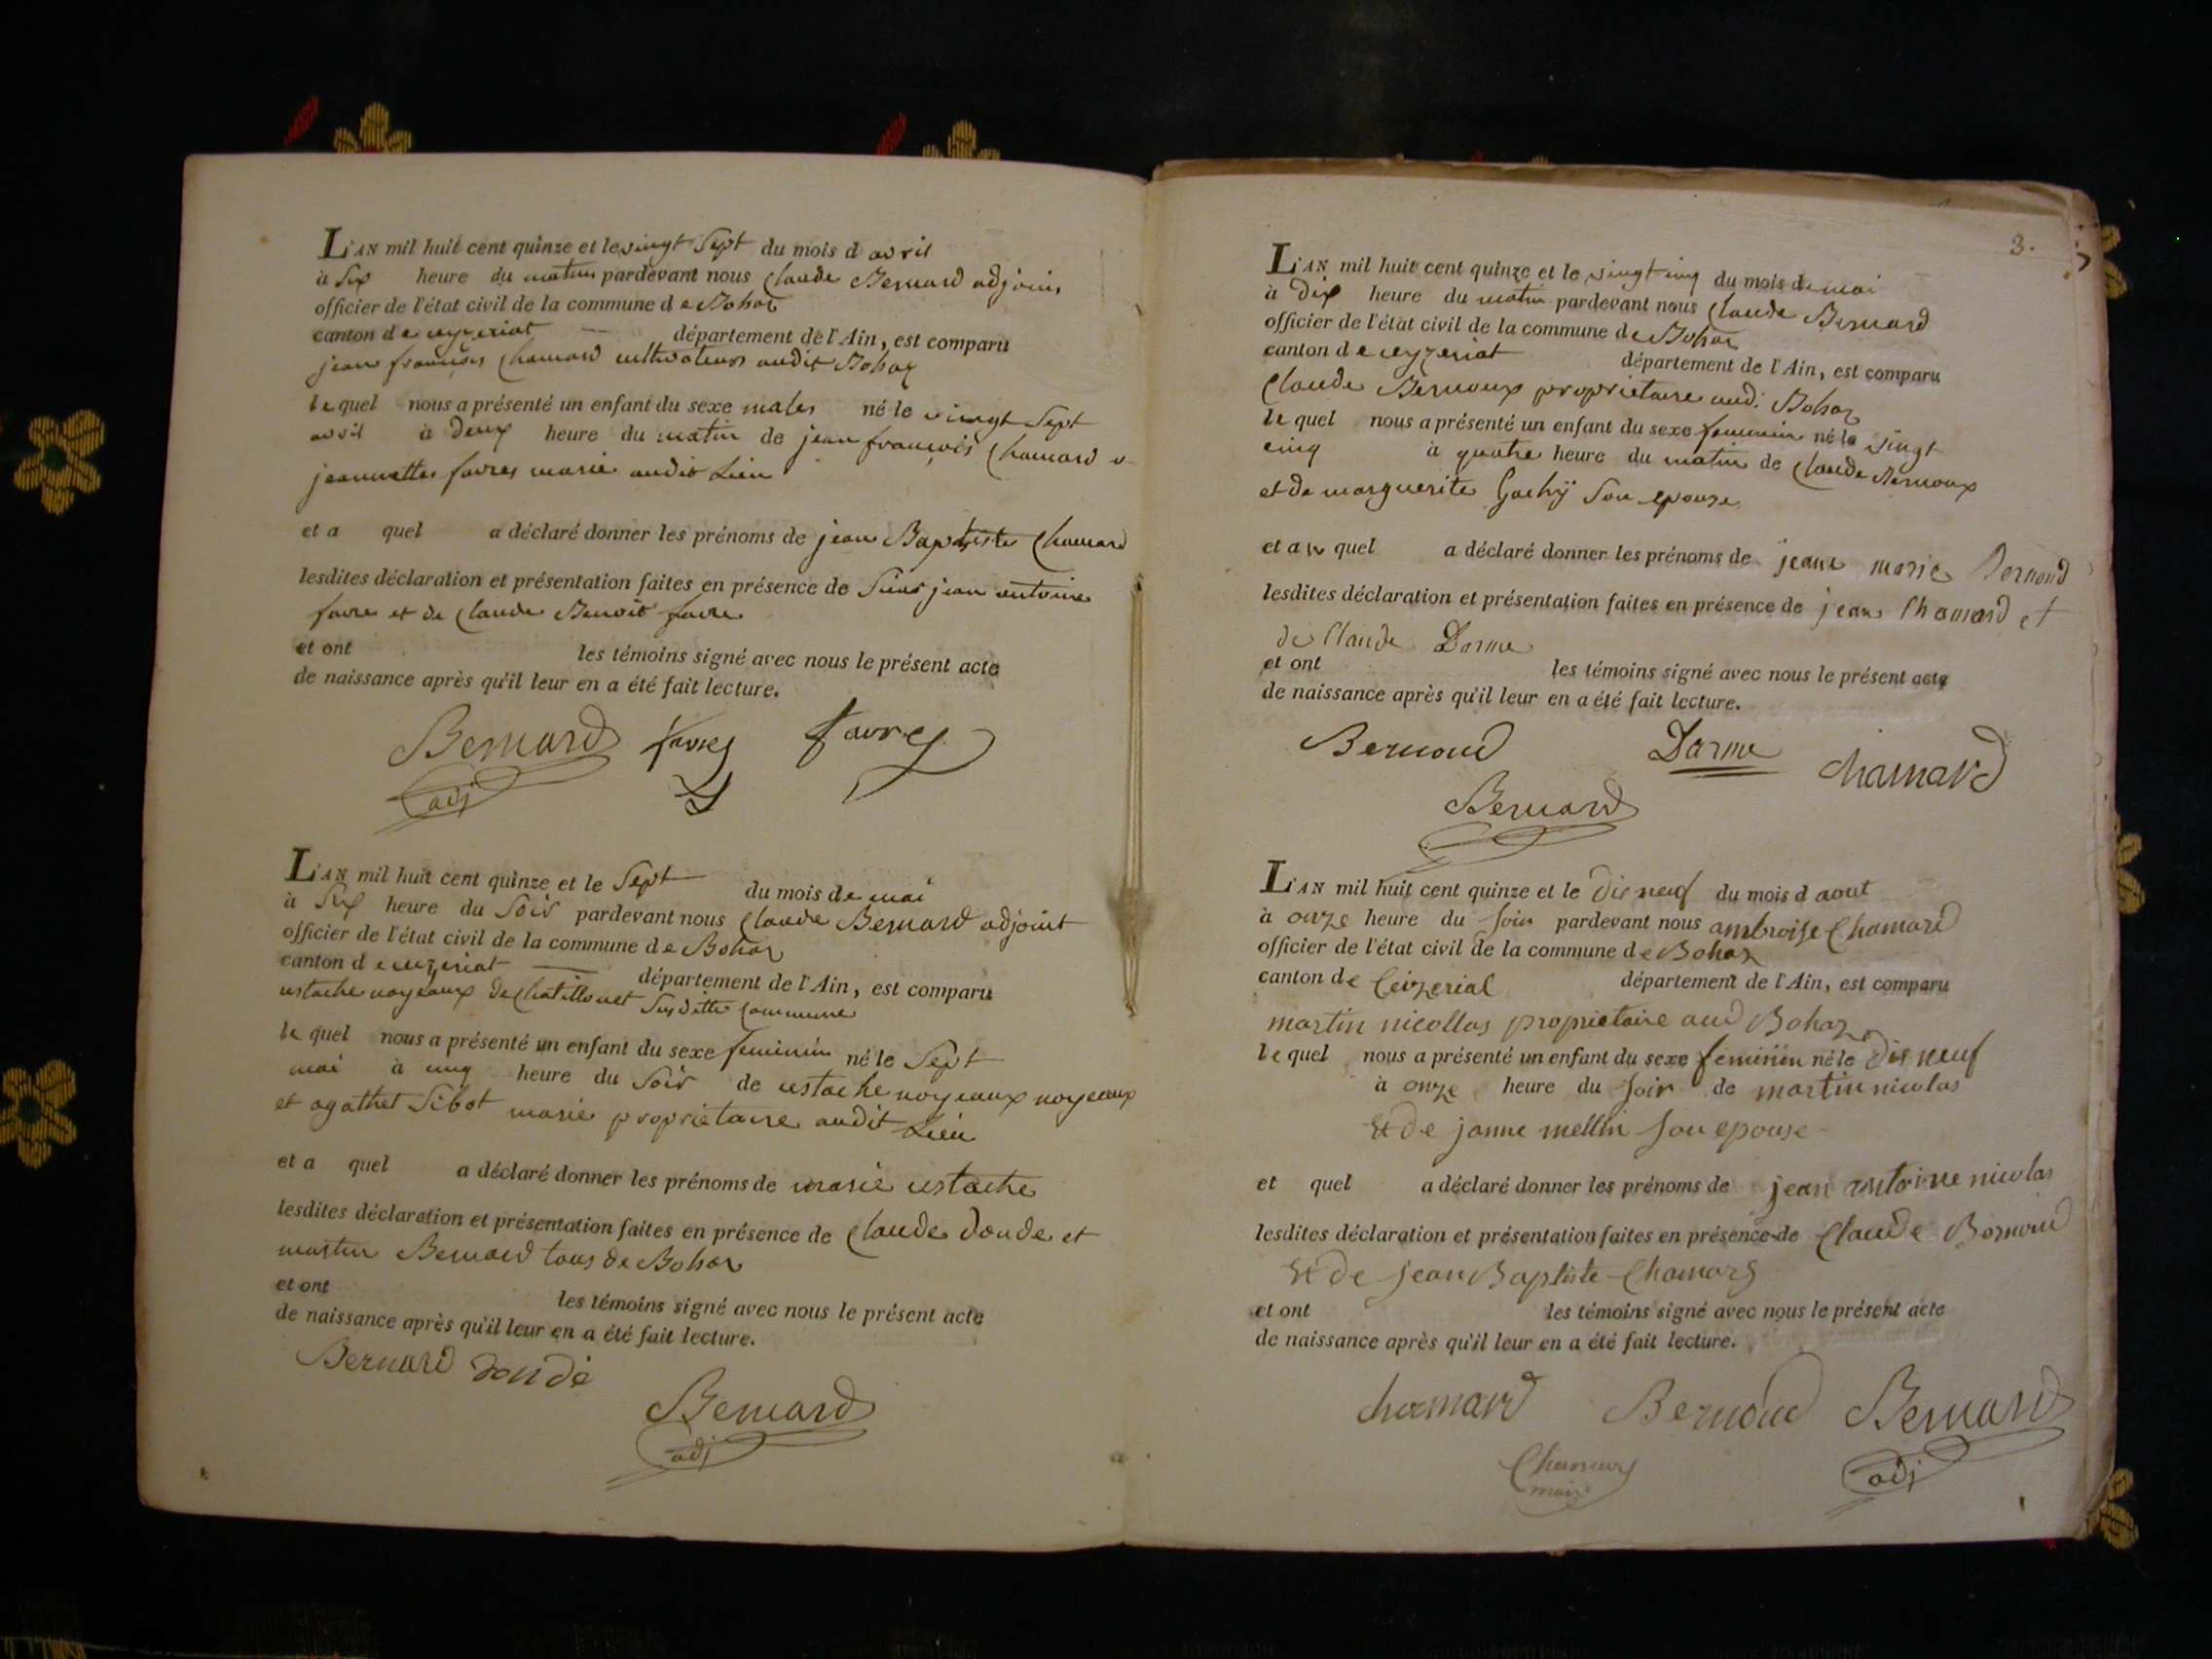 L'AN mil huit cent quinze et le vingt Sept du mois d avril
à Six heure du matin pardevant nous Claude Bernard adjoint
officier de l'état civil de la commune de Bohaz
canton de ceyzeriat département de l'Ain, est comparu
jean françois Chamard cultivateur audit Bohaz
lequel nous a présenté un enfant du sexe né le vingt Sept
avril à deux heure du matin de jean françois Chamard
jeannette favre marié audit Lieu
et a quel a déclaré donner les prénoms de jean Baptiste Chamard
lesdites déclaration et présentation faites en présence de Sieur jean antoine
favre et de Claude Benoit favre
et ont les témoins signé avec nous le présent acte
de naissance après qu'il leur en a été fait lecture.
Bernard favre favre
adj
L'AN mil huit cent quinze et le Sept du mois de mai
à Six heure du Soir pardevant nous Claude Bernard adjoint
officier de l'état civil de la commune de Bohaz
canton de département de l'Ain, est comparu
ustache noyeaux de Chatillonet Susditte Commune
le quel nous a présenté un enfant du sexe feminin né le Sept
mai à cinq heure du Soir de ustache noyeaux noyeaux
et agathet Sibot marié propriétaire audit Lieu
et a quel a déclaré donner les prénoms de marie ustache
lesdites déclaration et présentation faites en présence de Claude dondé et
martin Bernard tous de Bohaz
et ont les témoins signé avec nous le présent acte
de naissance après qu'il leur en a été fait lecture.
Bernard dondé
Bernard
adj
3.
L'AN mil huit cent quinze et le vingt cinq du mois de mai
à dix heure du matin pardevant nous Claude Bernard
officier de l'état civil de la commune de Bohaz
canton de ceyzeriat département de l'Ain, est comparu
Claude Bernoux propriétaire aud. Bohaz
le quel nous a présenté un enfant du sexe feminin né le vingt
cinq à quatre heure du matin de Claude Bernoux
et de marguerite Son epouse
et au quel a déclaré donner les prénoms de jeane marie Bernoud
lesdites déclaration et présentation faites en présence de jean Chamard et
de Claude Darme
et ont les témoins signé avec nous le présent acte
de naissance après qu'il leur en a été fait lecture.
Bernoud Darme chamard
Bernard
L'AN mil huit cent quinze et le dis neuf du mois d aout
à onze heure du soir pardevant nous ambroise Chamard
officier de l'état civil de la commune de Bohaz
canton de Ceizerial département de l'Ain, est comparu
martin nicollas propriétaire aud Bohaz
le quel nous a présenté un enfant du sexe feminin né le dis neuf
à onze heure du soir de martin nicolas
Et de janne mellin son epouse
et quel a déclaré donner les prénoms de jean antoine nicolas
lesdites déclaration et présentation faites en présence de Claude Bernoud
Et de jean Baptiste Chamard
et ont les témoins signé avec nous le présent acte
de naissance après qu'il leur en a été fait lecture.
chamard Bernoud Bernard
Chamard adj
maire